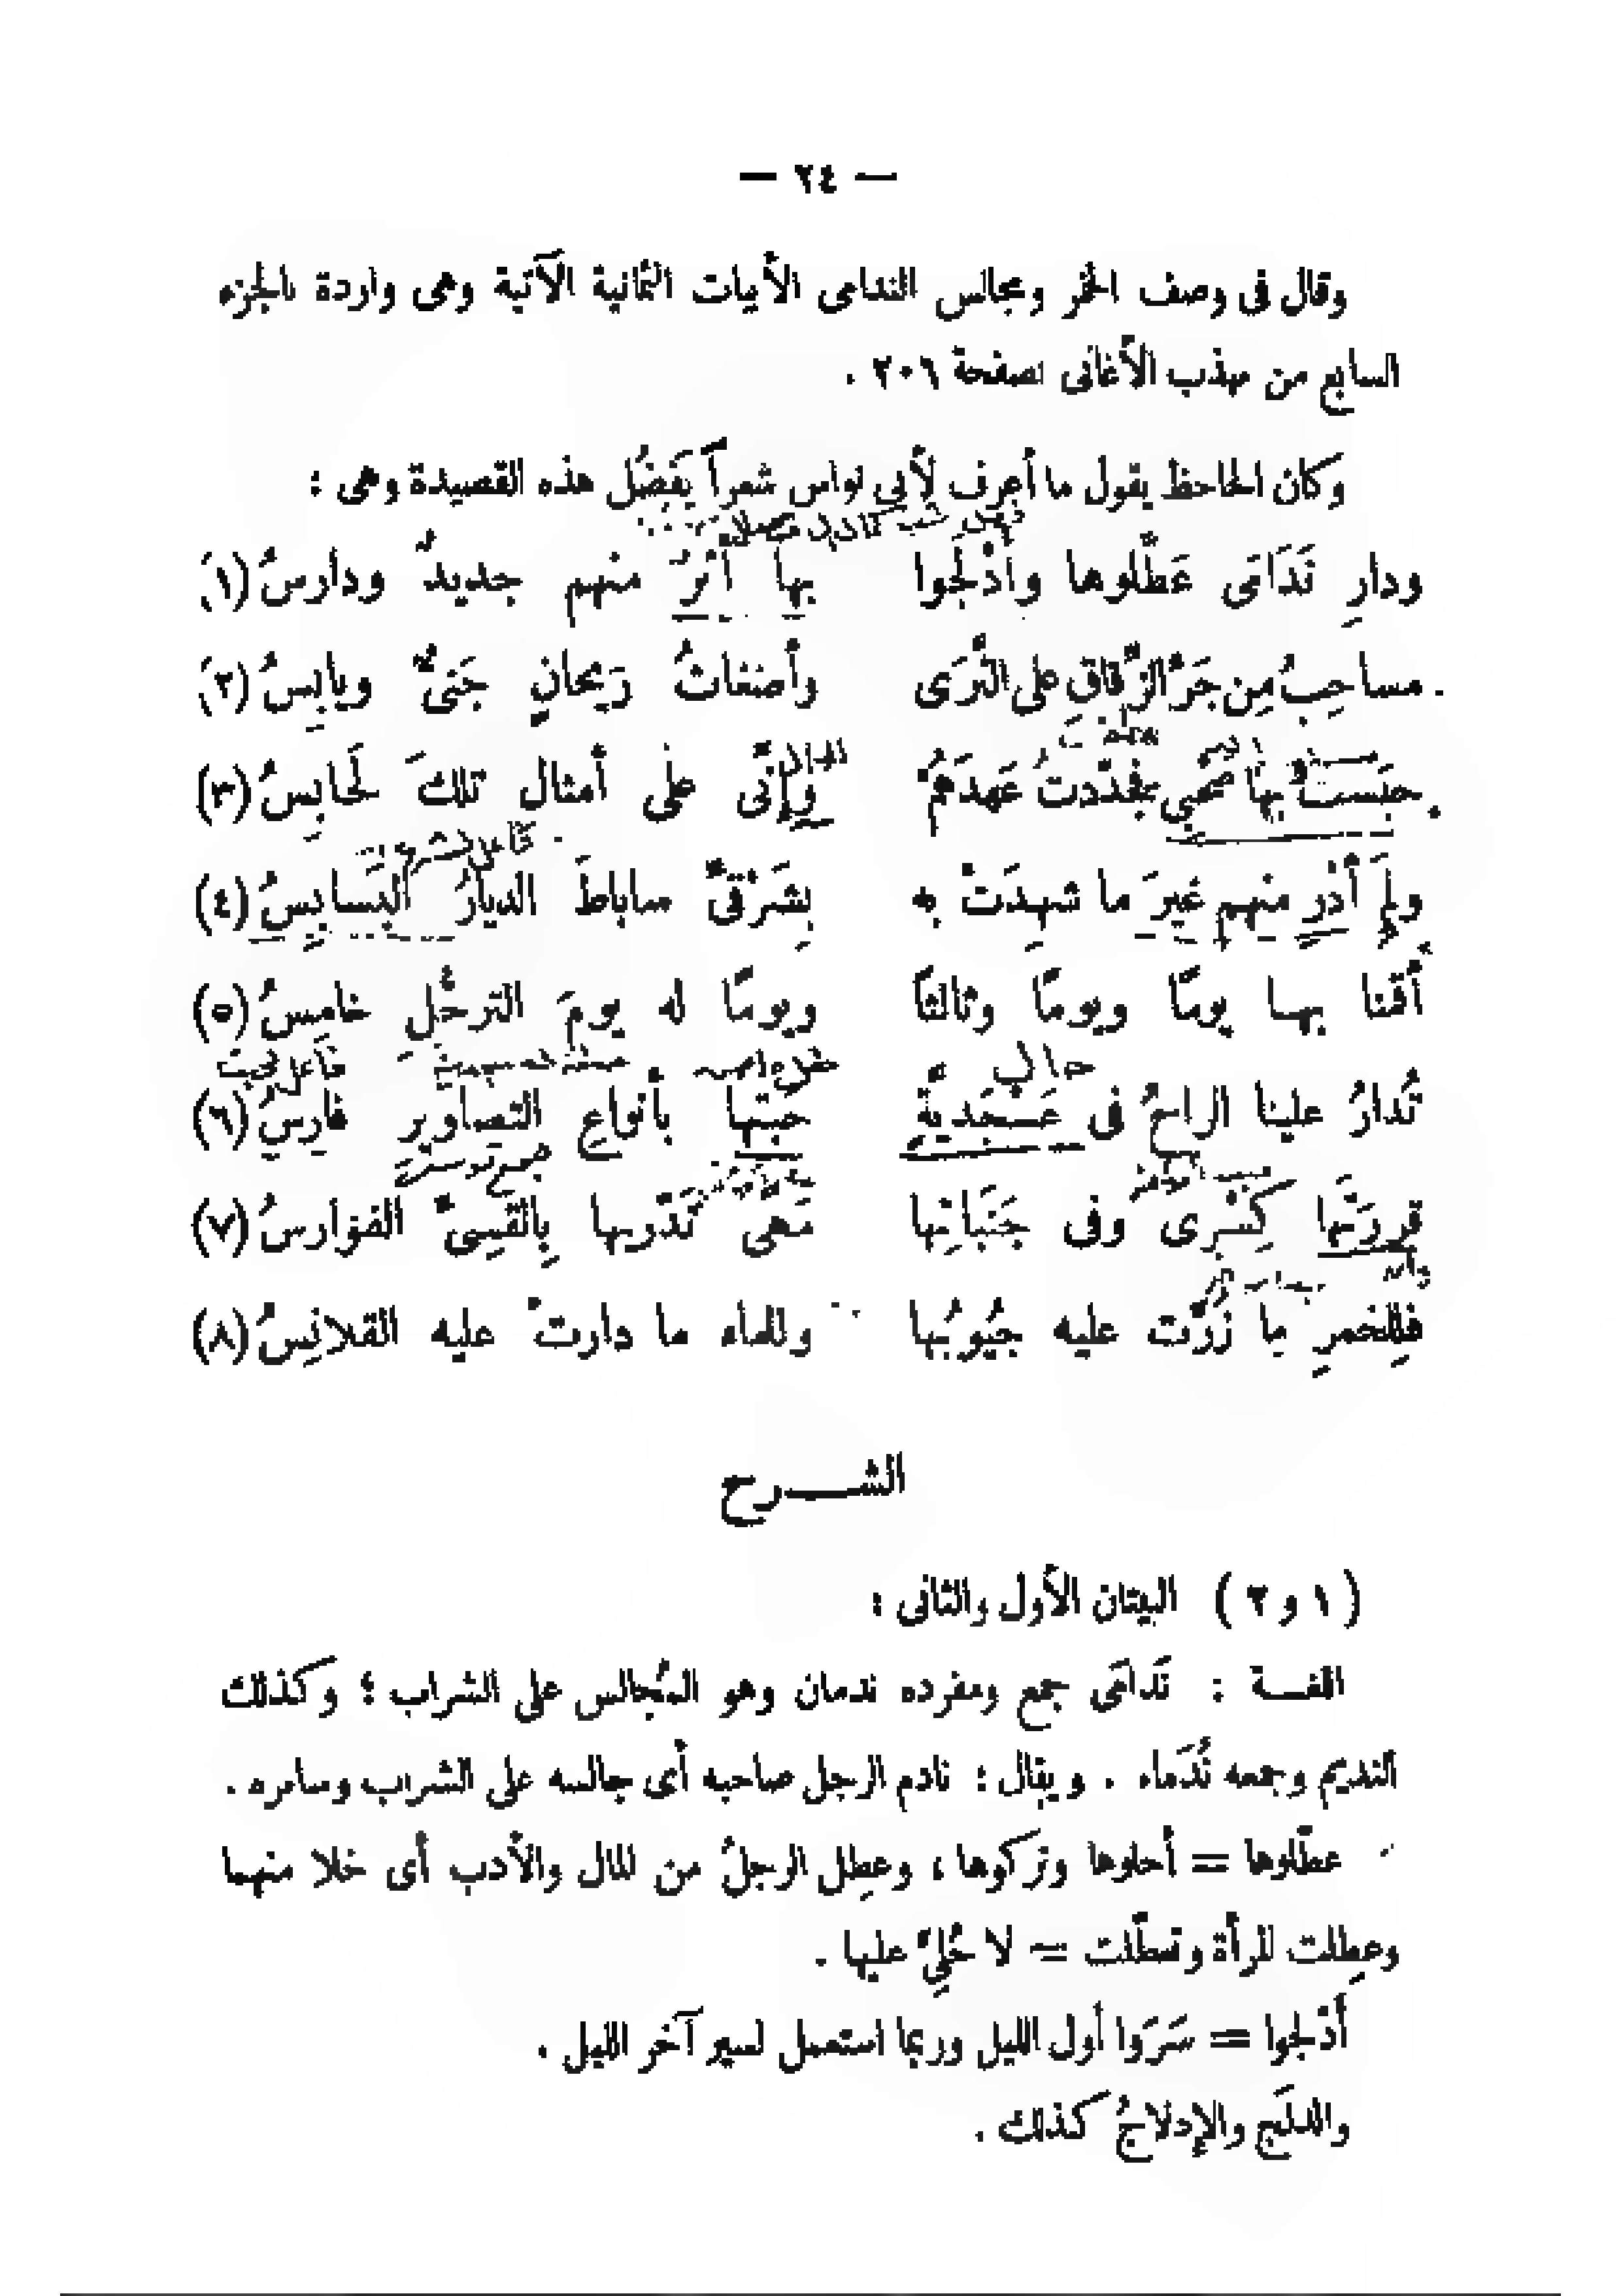 — ٢٤ —
وقال فى وصف الخمر ومجالس الندامى الأبيات الثمانية الآتية وهى واردة بالجزء
السابع من مهذب الأغانى بصفحة ٢٠٦ .
وكان الجاحظ يقول ما أعرف لأبى نواس شعراً يَفضُل هذه القصيدة وهى :
ودارِ نَدَامَى عَطَّلوها وأدْلَجوا بها أثرٌ منهم جديدٌ ودارسُ (١)
مساحِبُ مِن جَرِّ الزِّقاقِ على الثَّرَى وأضغاثُ رَيحانٍ جَنىٌّ ويابِسُ (٢)
حبَستُ بها صَحبى فجدّدتُ عَهدَهُمْ وإنّى على أمثالِ تلكَ لَحابِسُ (٣)
ولم أَدْرِ منهم غيرَ ما شهِدَتْ به بِشَرْقىِّ ساباطَ الديارُ البَسابِسُ (٤)
أقنا بها يومًا ويومًا وثالثًا ويومًا له يومَ الترحُّلِ خامِسُ (٥)
حال
تُدارُ علينا الراحُ فى عَسْجَديَّةٍ حبَتها بأنواعِ التصاويرِ فارِسُ (٦)
قرارَتُها كِسْرى وفى جَنَباتِها مَهًى تَدَّريها بِالقِسِىِّ الفوارسُ (٧)
فلِلخمرِ ما زُرَّت عليه جُيوبُها وللماء ما دارتْ عليه القلانِسُ (٨)
الشـــرح
( ١ و ٢ ) البيتان الأول والثانى :
اللغـــة : نَدامَى جمع ومفرده ندمان وهو المُجالس على الشراب ؛ وكذلك
النديم وجمعه نُدَماء . ويقال : نادم الرجل صاحبه أى جالسه على الشراب وسامره .
عطّلوها = أخلوها وتركوها ، وعطِل الرجلُ من المال والأدب أى خلا منهما
وعطِلت المرأة وتعطّلت = لا حُلِىَّ عليها .
أدْلجوا = سَرَوا أول الليل وربما استعمل لسير آخر الليل .
والدلَج والإدلاجُ كذلك .